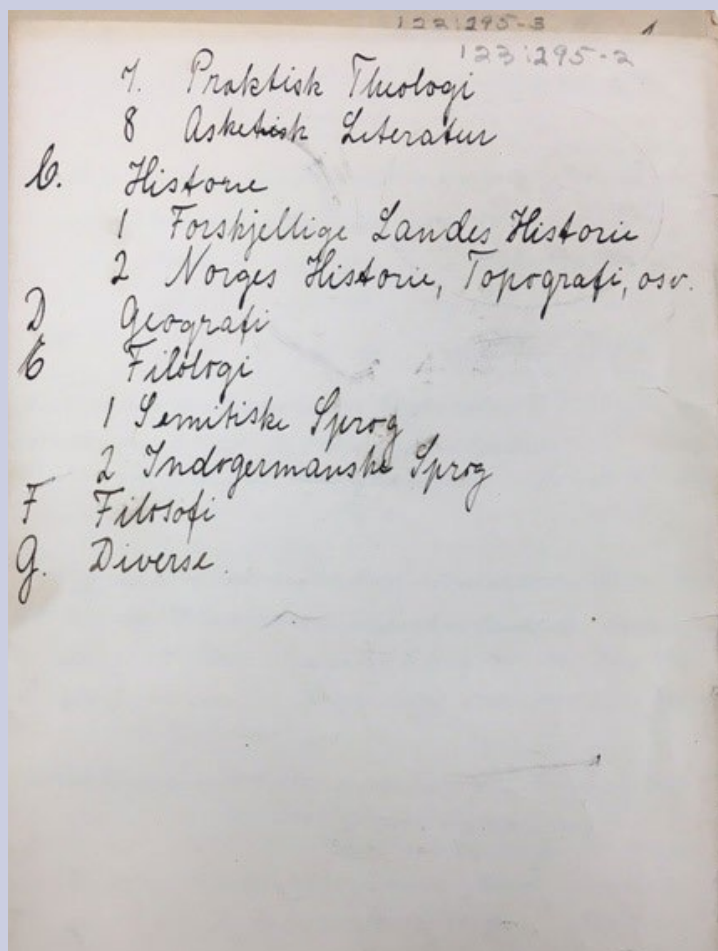 122:295-3
123:295-2
7. Praktisk Theologi
8 Asketisk Literatur
C. Historie
1 Forskjellige Landes Historie
2 Norges Historie, Topografi, osv.
D Geografi
E Filologi
1 Semitiske Sprog
2 Indogermanske Sprog
F Filosofi
G. Diverse.